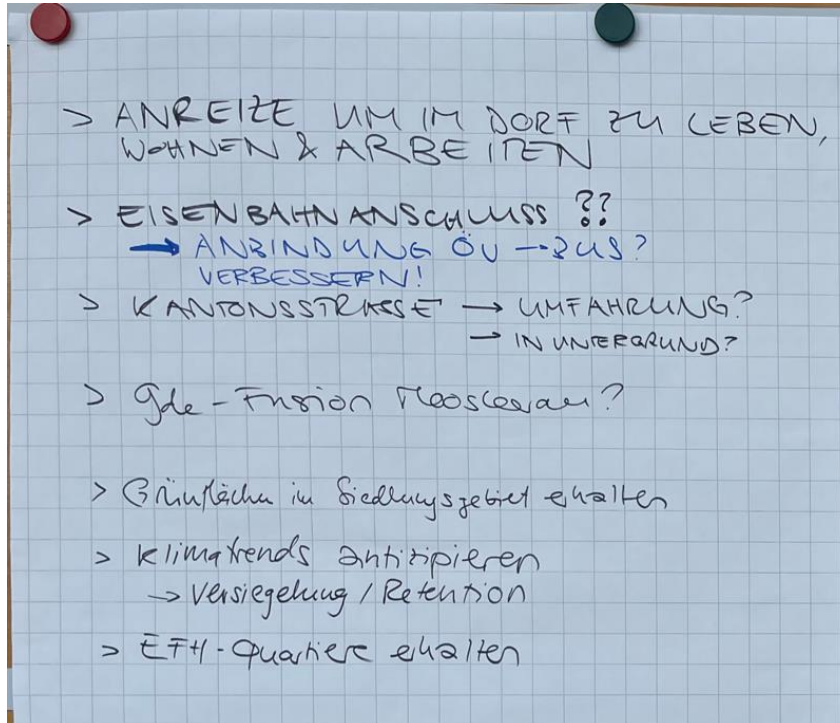 > ANREIZE UM IM DORF ZU LEBEN,
WOHNEN & ARBEITEN
> EISENBAHNANSCHLUSS ??
→ ANBINDUNG ÖV → BUS?
VERBESSERN!
> KANTONSSTRASSE → UMFAHRUNG?
→ IN UNTERGRUND?
> Gde - Fusion Moosleerau?
> Grünflächen in Siedlungsgebiet erhalten
> Klimatrends antizipieren
→ Versiegelung / Retention
> EFH - Quartiere erhalten